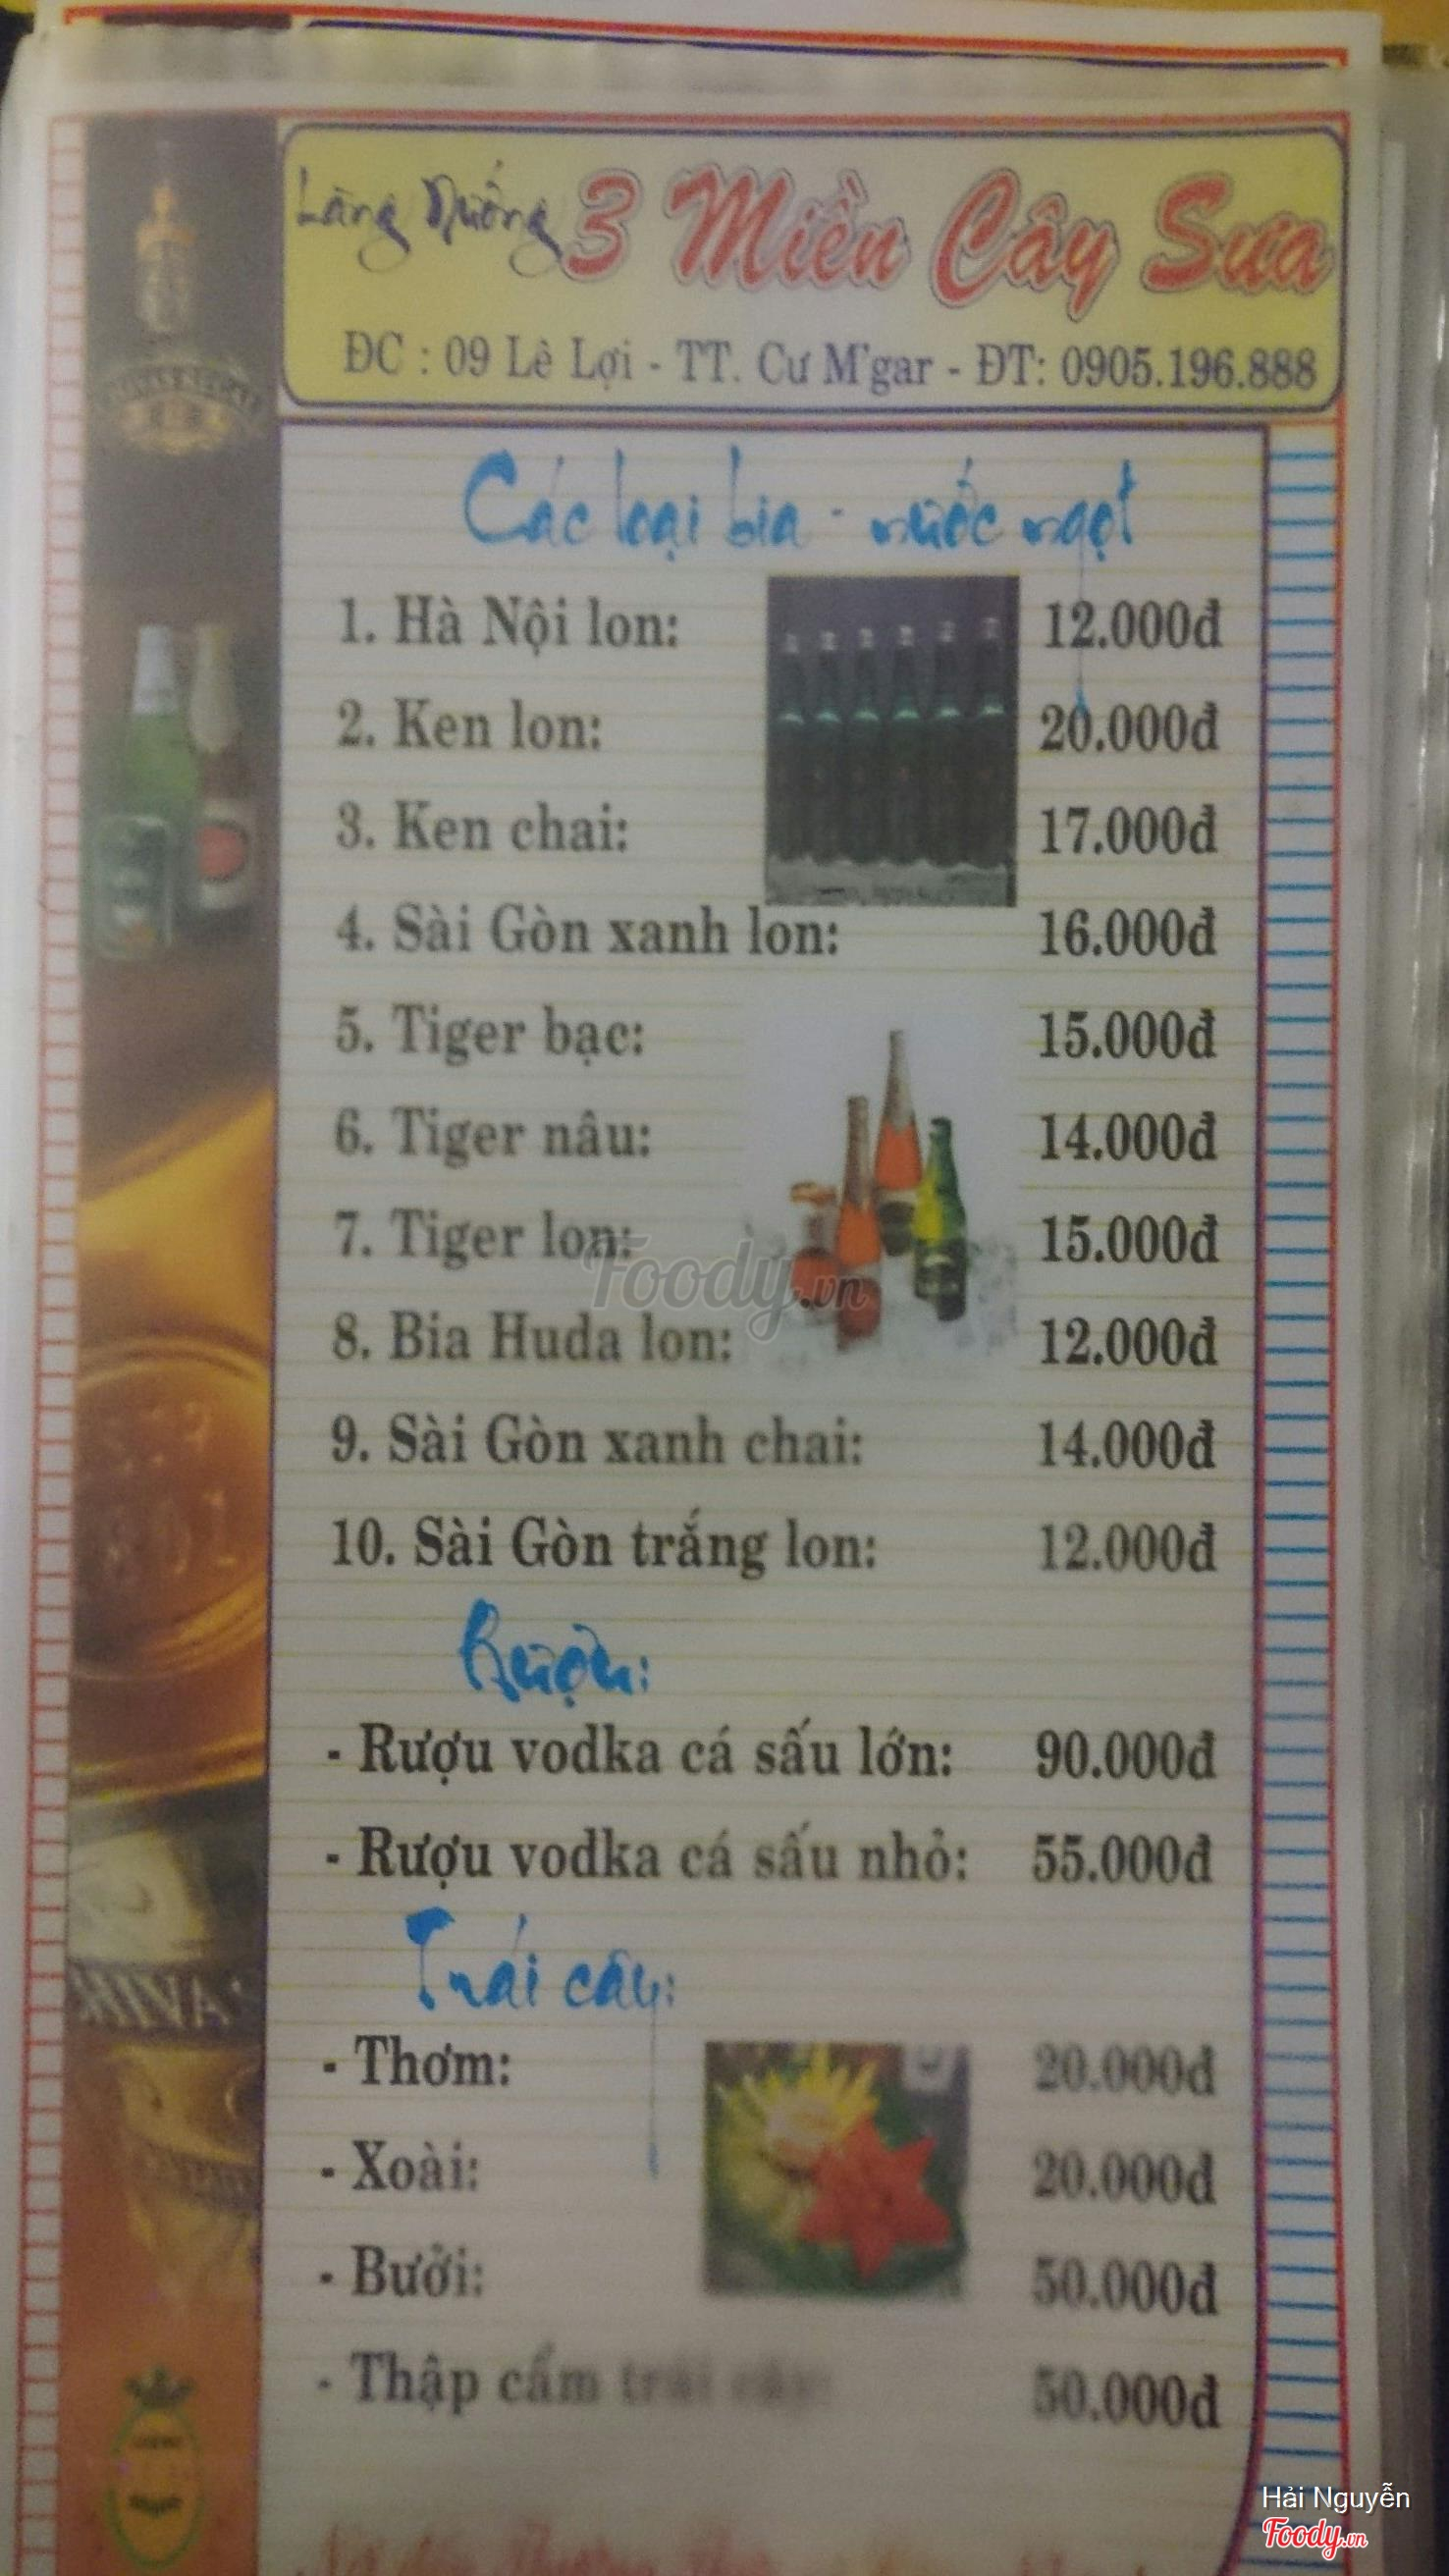 Làng Nướng 3 Miền Cây Sưa
ĐC : 09 Lê Lợi - TT. Cư M'gar - ĐT: 0905.196.888
Các loại bia - nước ngọt
1. Hà Nội lon: 12.000đ
2. Ken lon: 20.000đ
3. Ken chai: 17.000đ
4. Sài Gòn xanh lon: 16.000đ
5. Tiger bạc: 15.000đ
6. Tiger nâu: 14.000đ
7. Tiger lon: 15.000đ
Foody.vn
8. Bia Huda lon: 12.000đ
9. Sài Gòn xanh chai: 14.000đ
10. Sài Gòn trắng lon: 12.000đ
Rượu:
- Rượu vodka cá sấu lớn: 90.000đ
- Rượu vodka cá sấu nhỏ: 55.000đ
Trái cây:
- Thơm: 20.000đ
- Xoài: 20.000đ
- Bưởi: 50.000đ
- Thập cẩm trái cây: 50.000đ
Hải Nguyễn
Foody.vn